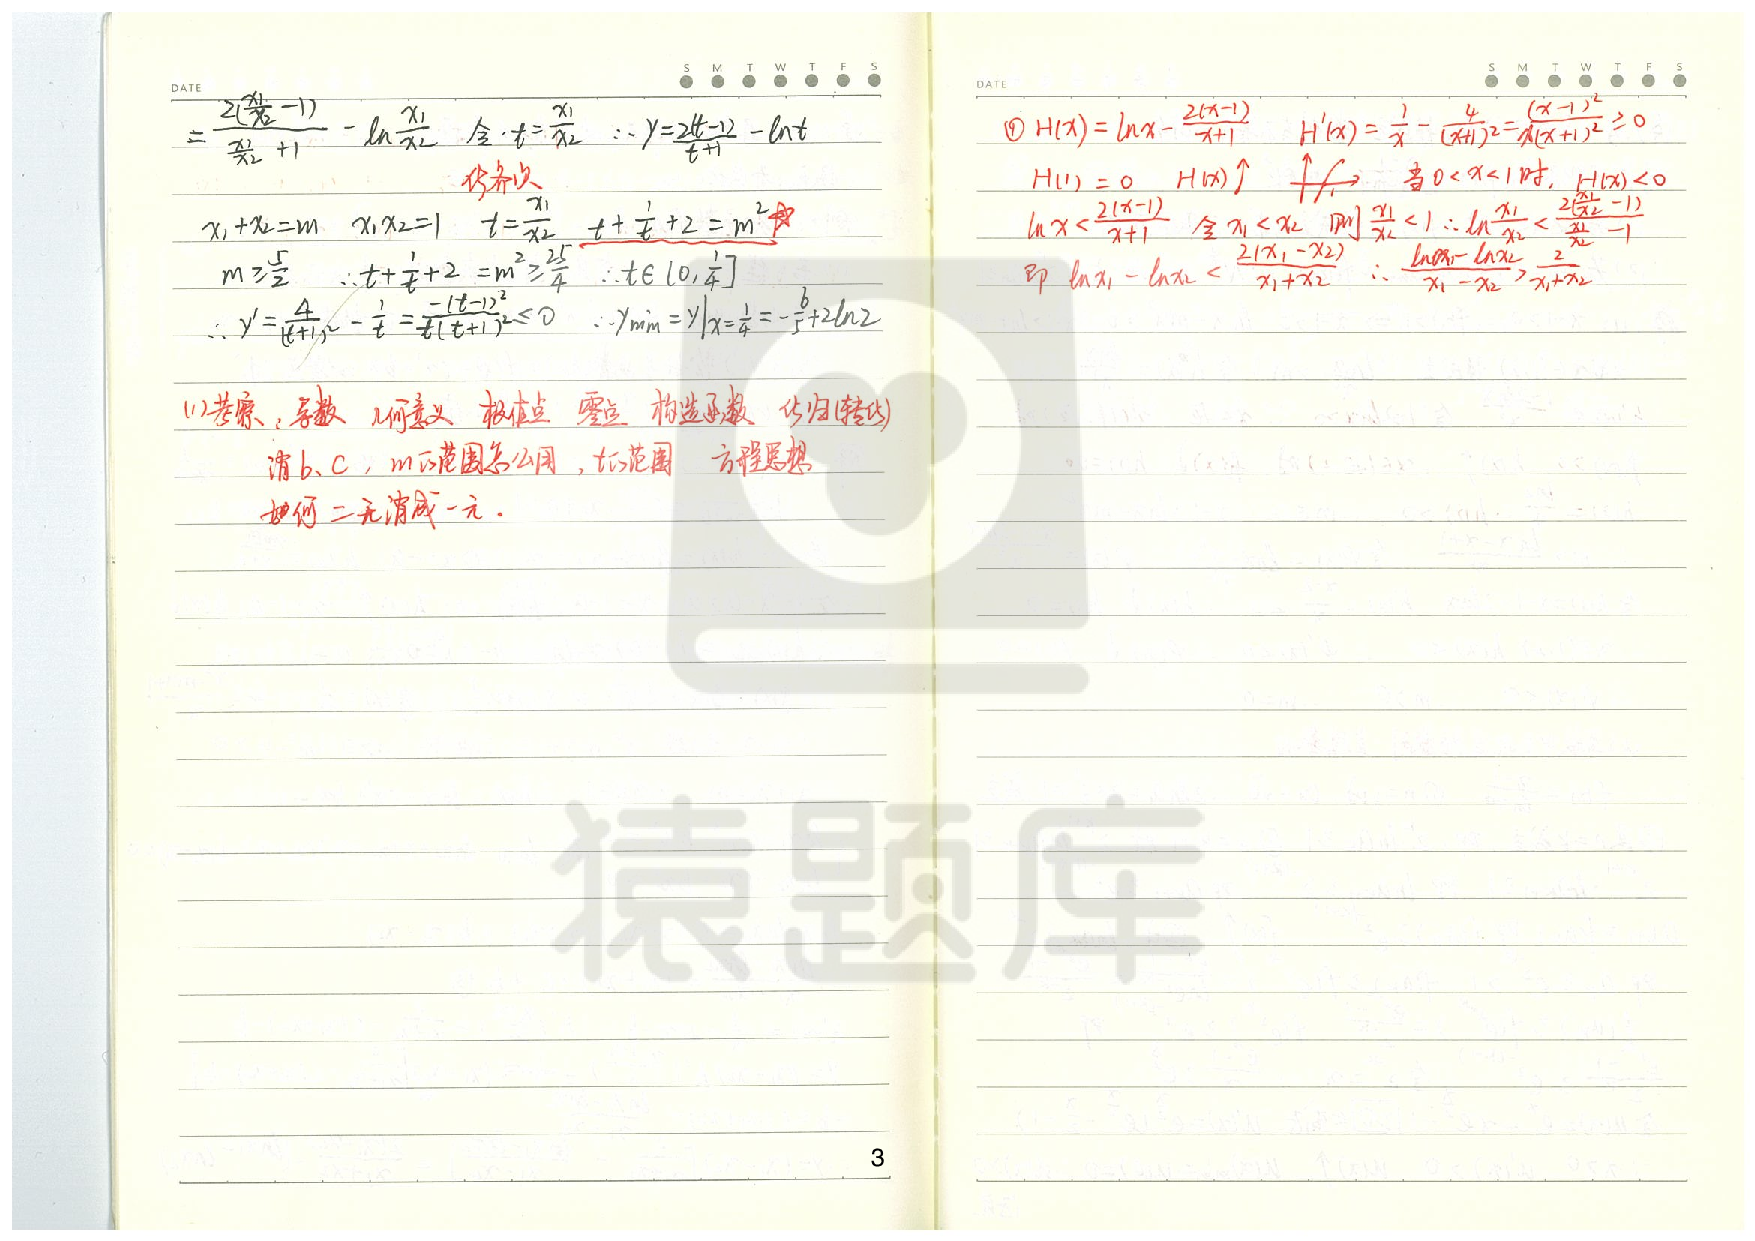 DATE
S M T W T F S
= 2(x₁/x₂ - 1)/(x₁/x₂ + 1) - ln x₁/x₂ 令·t = x₁/x₂ ∴ y = 2(t-1)/(t+1) - lnt
化齐次
x₁+x₂=m x₁x₂=1 t = x₁/x₂ t + 1/t + 2 = m² ☆
m ≥ 5/2 ∴ t + 1/t + 2 = m² ≥ 25/4 ∴ t∈(0, 1/4]
∴ y' = 4/(t+1)² - 1/t = -(t-1)²/t(t+1)² ≤ 0 ∴ymin = y|x=1/4 = -6/5 + 2ln2
(1)考察:导数 几何意义 极值点 零点 构造函数 化归(转化)
消b、c, m的范围怎么用, t的范围 方程思想
如何二元消成一元.
3
DATE
S M T W T F S
H(x) = lnx - 2(x-1)/(x+1) H'(x) = 1/x - 4/(x+1)² = (x-1)²/x(x+1)² ≥ 0
H(1) = 0 H(x)↑ 当0<x<1时, H(x)<0
lnx < 2(x-1)/(x+1) 令x₁<x₂ 则 x₁/x₂ < 1 ∴ ln x₁/x₂ < 2(x₁/x₂ - 1)/(x₁/x₂ - 1)
即 lnx₁ - lnx₂ < 2(x₁-x₂)/(x₁+x₂) ∴ (lnx₁ - lnx₂)/(x₁ - x₂) > 2/(x₁+x₂)
猿题库